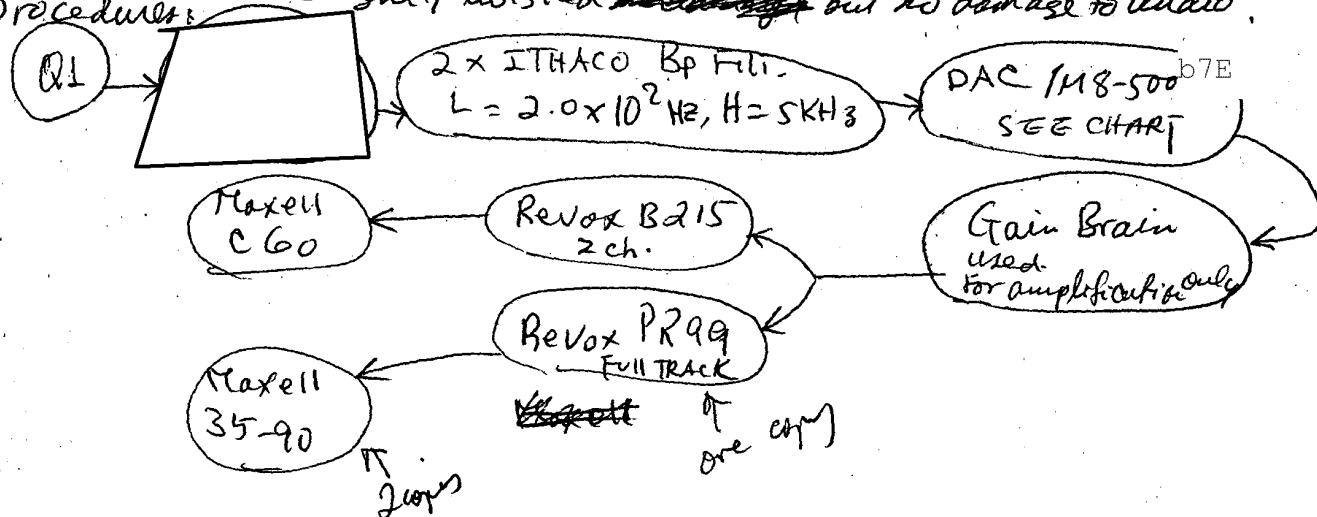 Procedures: twisted but no damage to audio.
Q1
2 x ITHACO Bp Filt.
L = 2.0 x 10² Hz, H = 5KHz
DAC /M8-500
SEE CHART
b7E
Gain Brain
used
for amplification only
Revox B215
2 ch.
Maxell
C60
Revox PR99
FULL TRACK
Maxell
35-90
one copy
2 copies